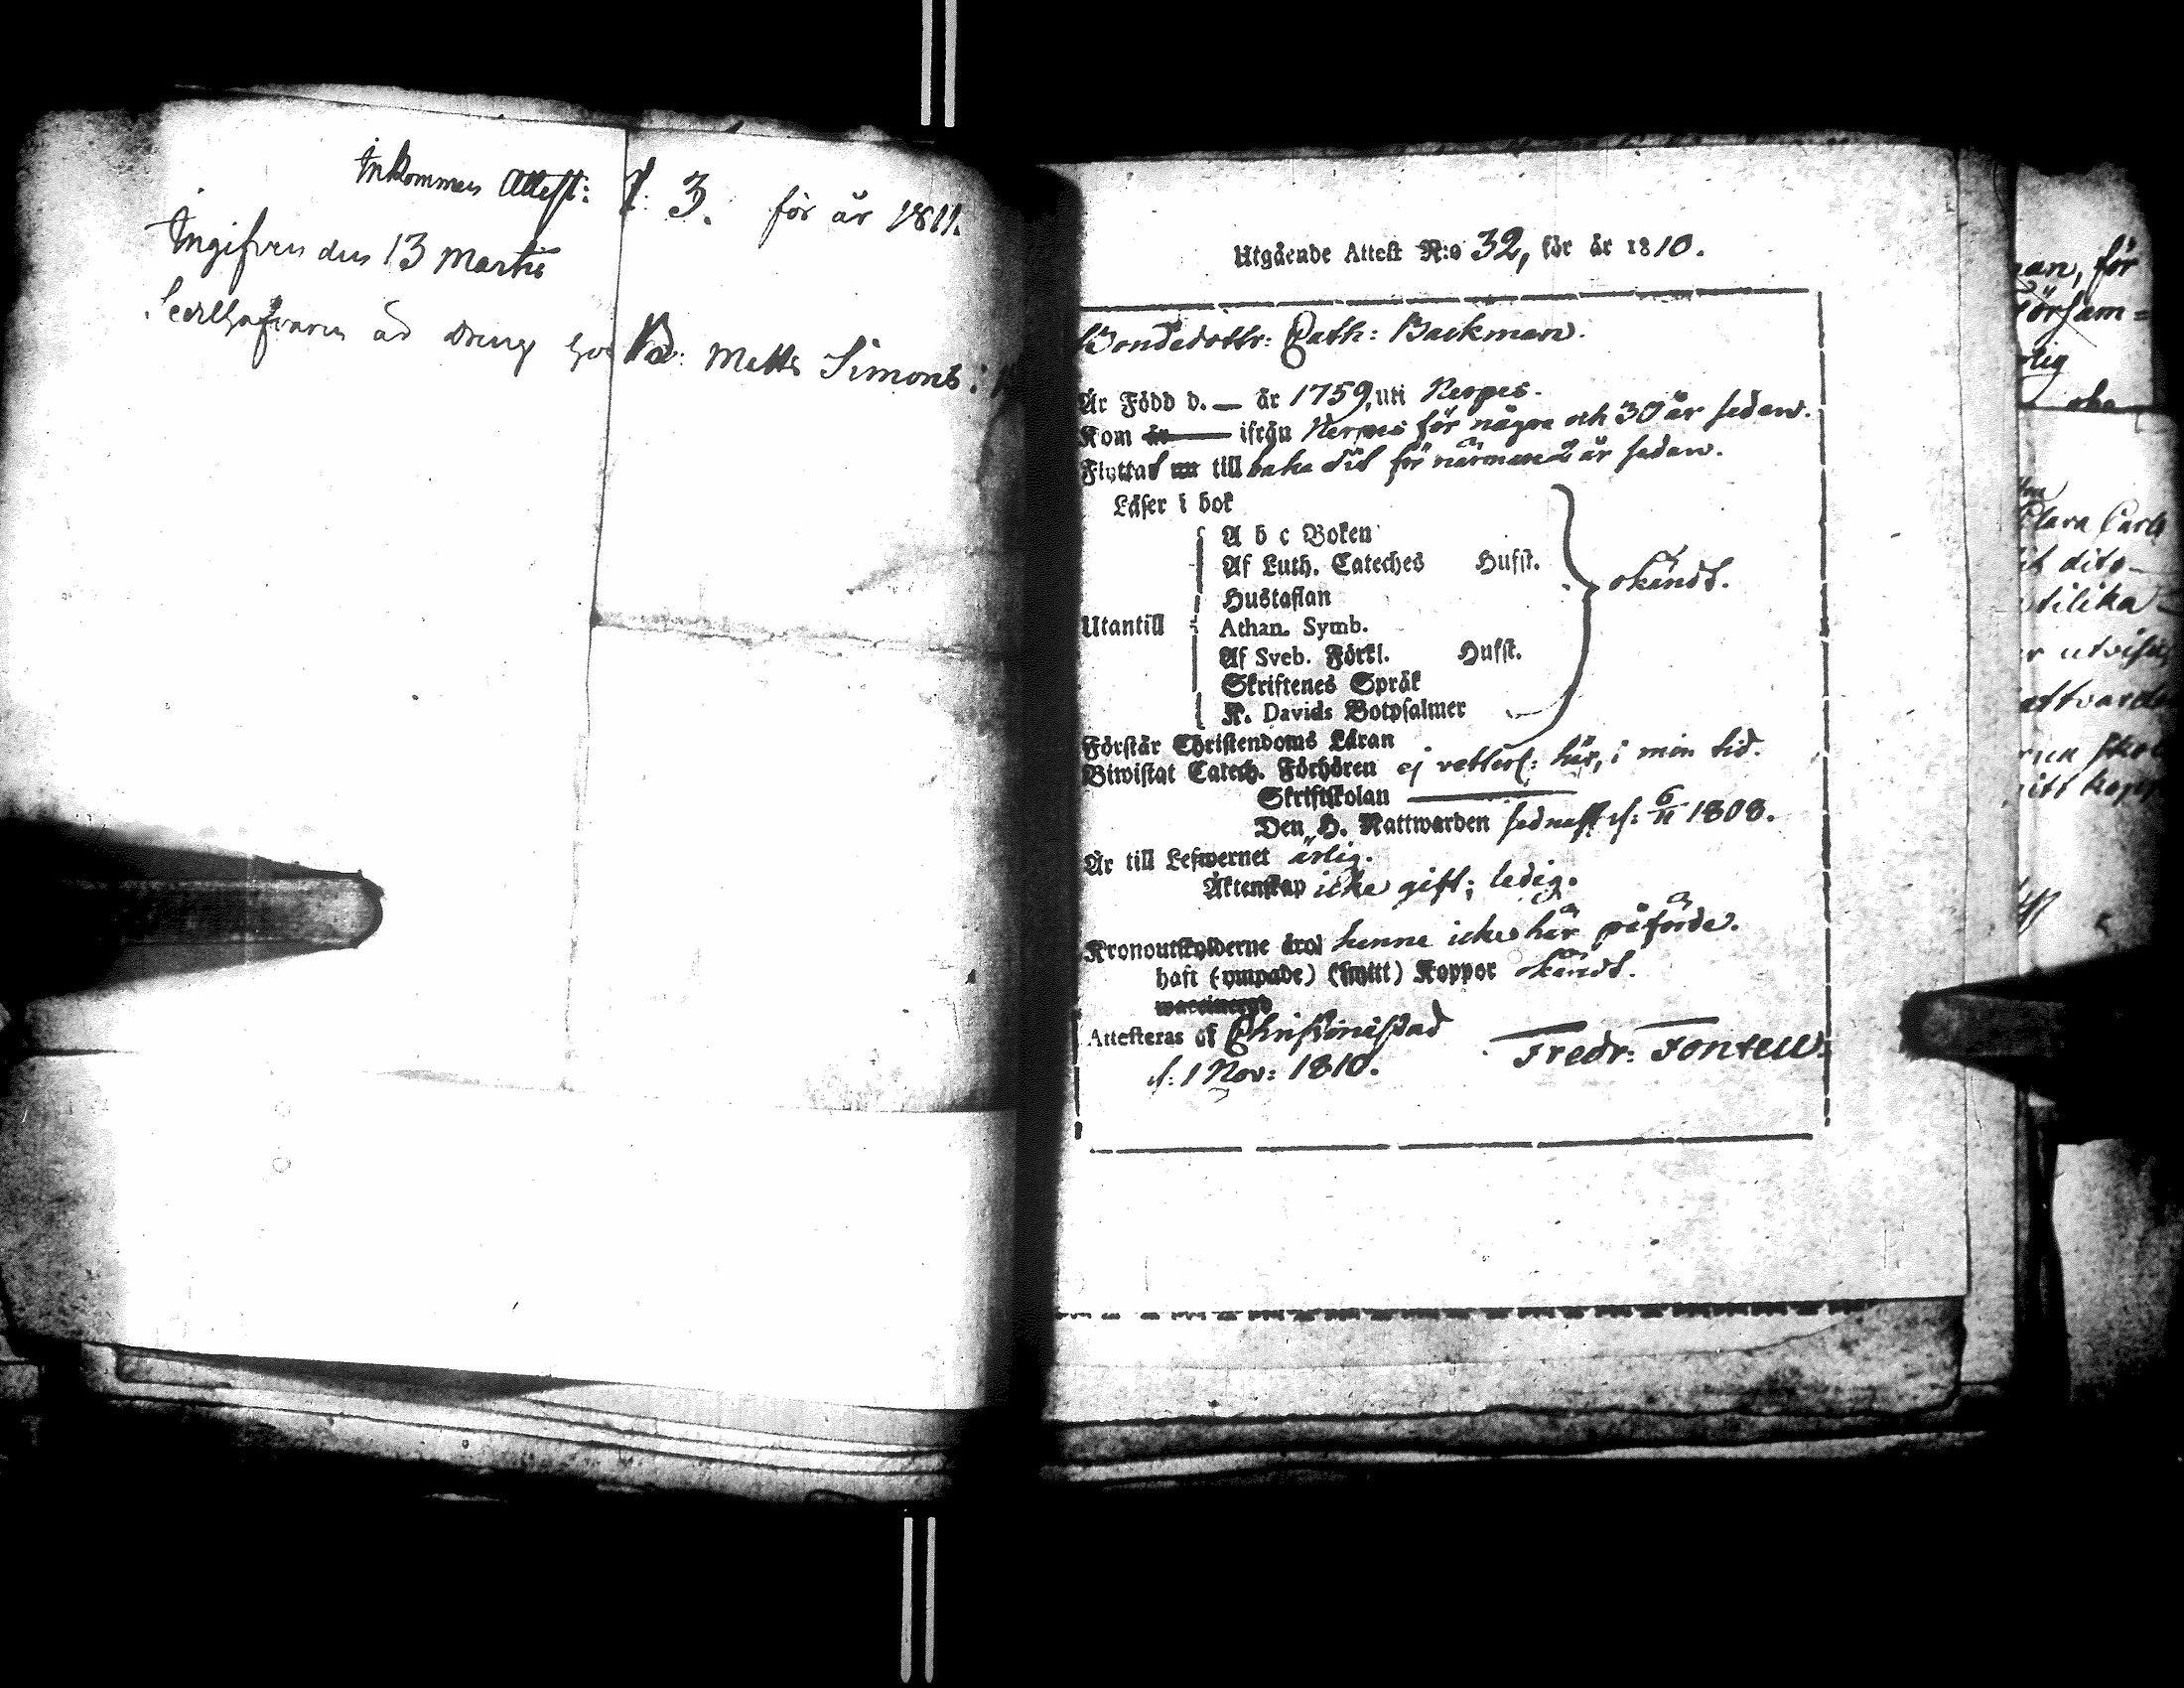 Inkommen Attest: N: 3. för år 1811.
Ingifven den 13 Martii
är dreng hos Bd: Matts Simons:
Utgående Attest N:o 32, för år 1810.
Bondedottr: Cath: Backman.
Är Född d. — år 1759, uti Nerpes.
Kom år ifrån Nerpes för några och 30 år sedan.
Flyttat nu till baka dit för närmare 2 år sedan.
Läser i bok
A b c Boken
Af Luth. Cateches Hufst.
Hustaflan
okändt.
Utantill
Athan. Symb.
Af Sveb. Förkl. Hufst.
Skriftenes Språk
K. Davids Botpsalmer
Förstår Christendoms Läran
Biwistat Catech. Förhören ej vetterl: här, i min tid.
Skriftskolan
Den H. Nattwarden sednast d: 6/11 1808.
Är till Lefwernet ärlig.
Äktenskap icke gift; ledig.
Kronoutskylderne äro henne icke här påförde.
haft (ympade) (smitt) Koppor okändt.
waccinerad
Attesteras af Christinestad
d: 1 Nov: 1810.
Fredr: Fontell.
an, för
Försam=
lig
Clara Carls
it dito
utvisa